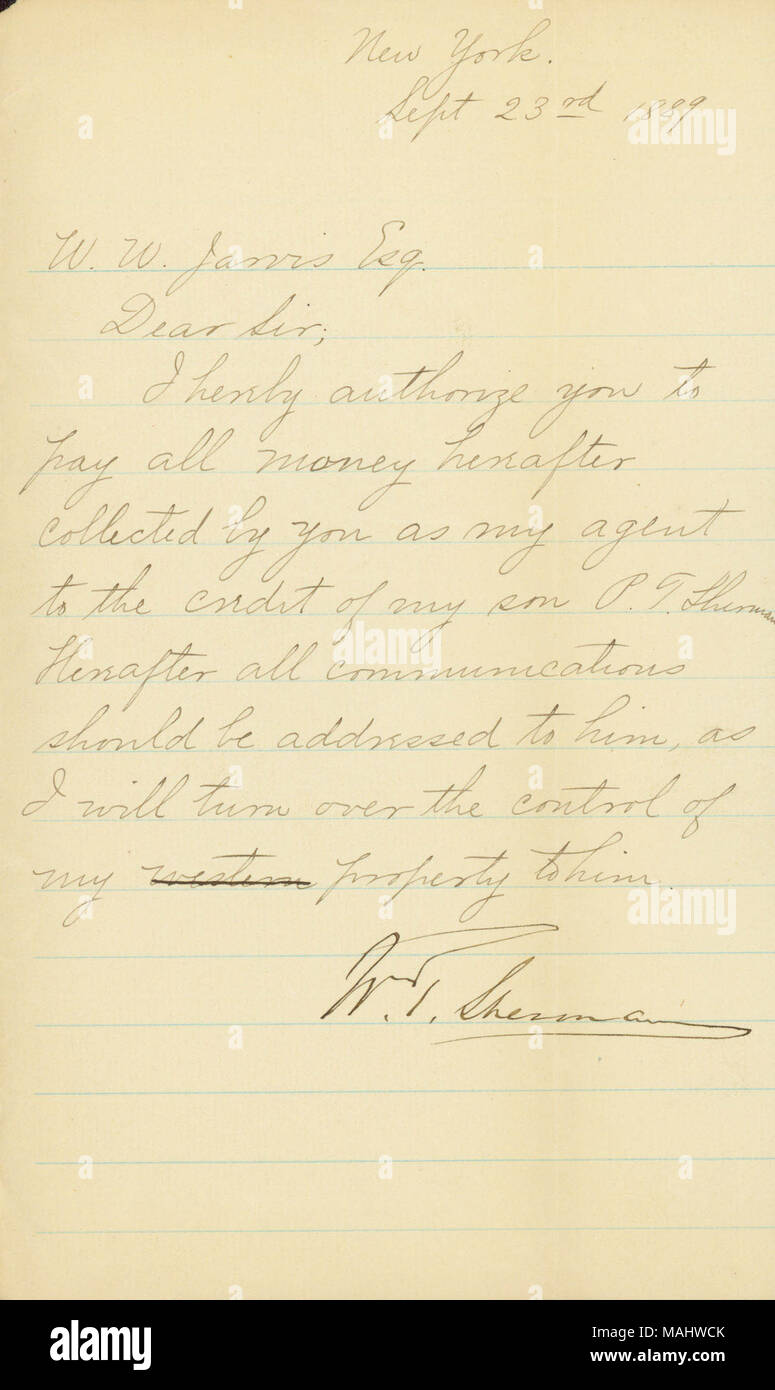 New York.
Sept 23rd 1889
W. W. Jarvis Esq.
Dear Sir;
I hereby authorize you to
pay all money hereafter
collected by you as my agent
to the credit of my son P. T. Sherman
Hereafter all communications
should be addressed to him, as
I will turn over the control of
my western property to him.
W. T. Sherman
a alamy
alamy
Image ID: MAHWCK
www.alamy.com